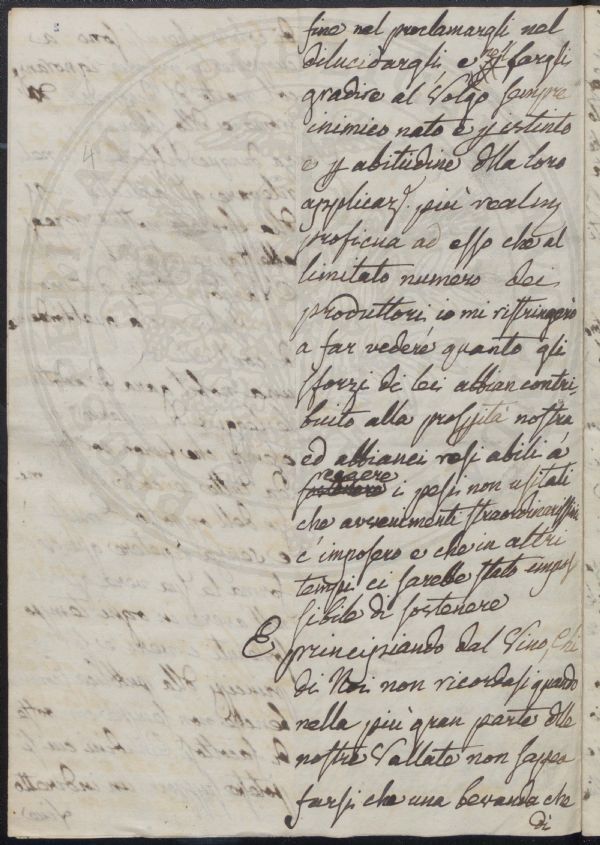 fine nel proclamargli nel
dilucidargli, e nel fargli
gradire al Volgo sempre
inimico nato e p istinto
e p abitudine dlla loro
applicaz.e più realm
proficua ad esso che al
limitato numero dei
produttori, io mi ristringerò
a far vedere quanto gli
sforzi di lei abbian contri
buito alla prosptà nostra
ed abbianci resi abili a
reggere
i pesi non usitati
che avvenimenti straordinarissimi
c'imposero e che in altri
tempi ci sarebbe stato impos
sibile di sostenere
E principiando dal Vino, Chi
di Noi non ricordasi quando
nella più gran parte dlle
nostre Vallate non sapea
farsi che una bevanda che
di
4